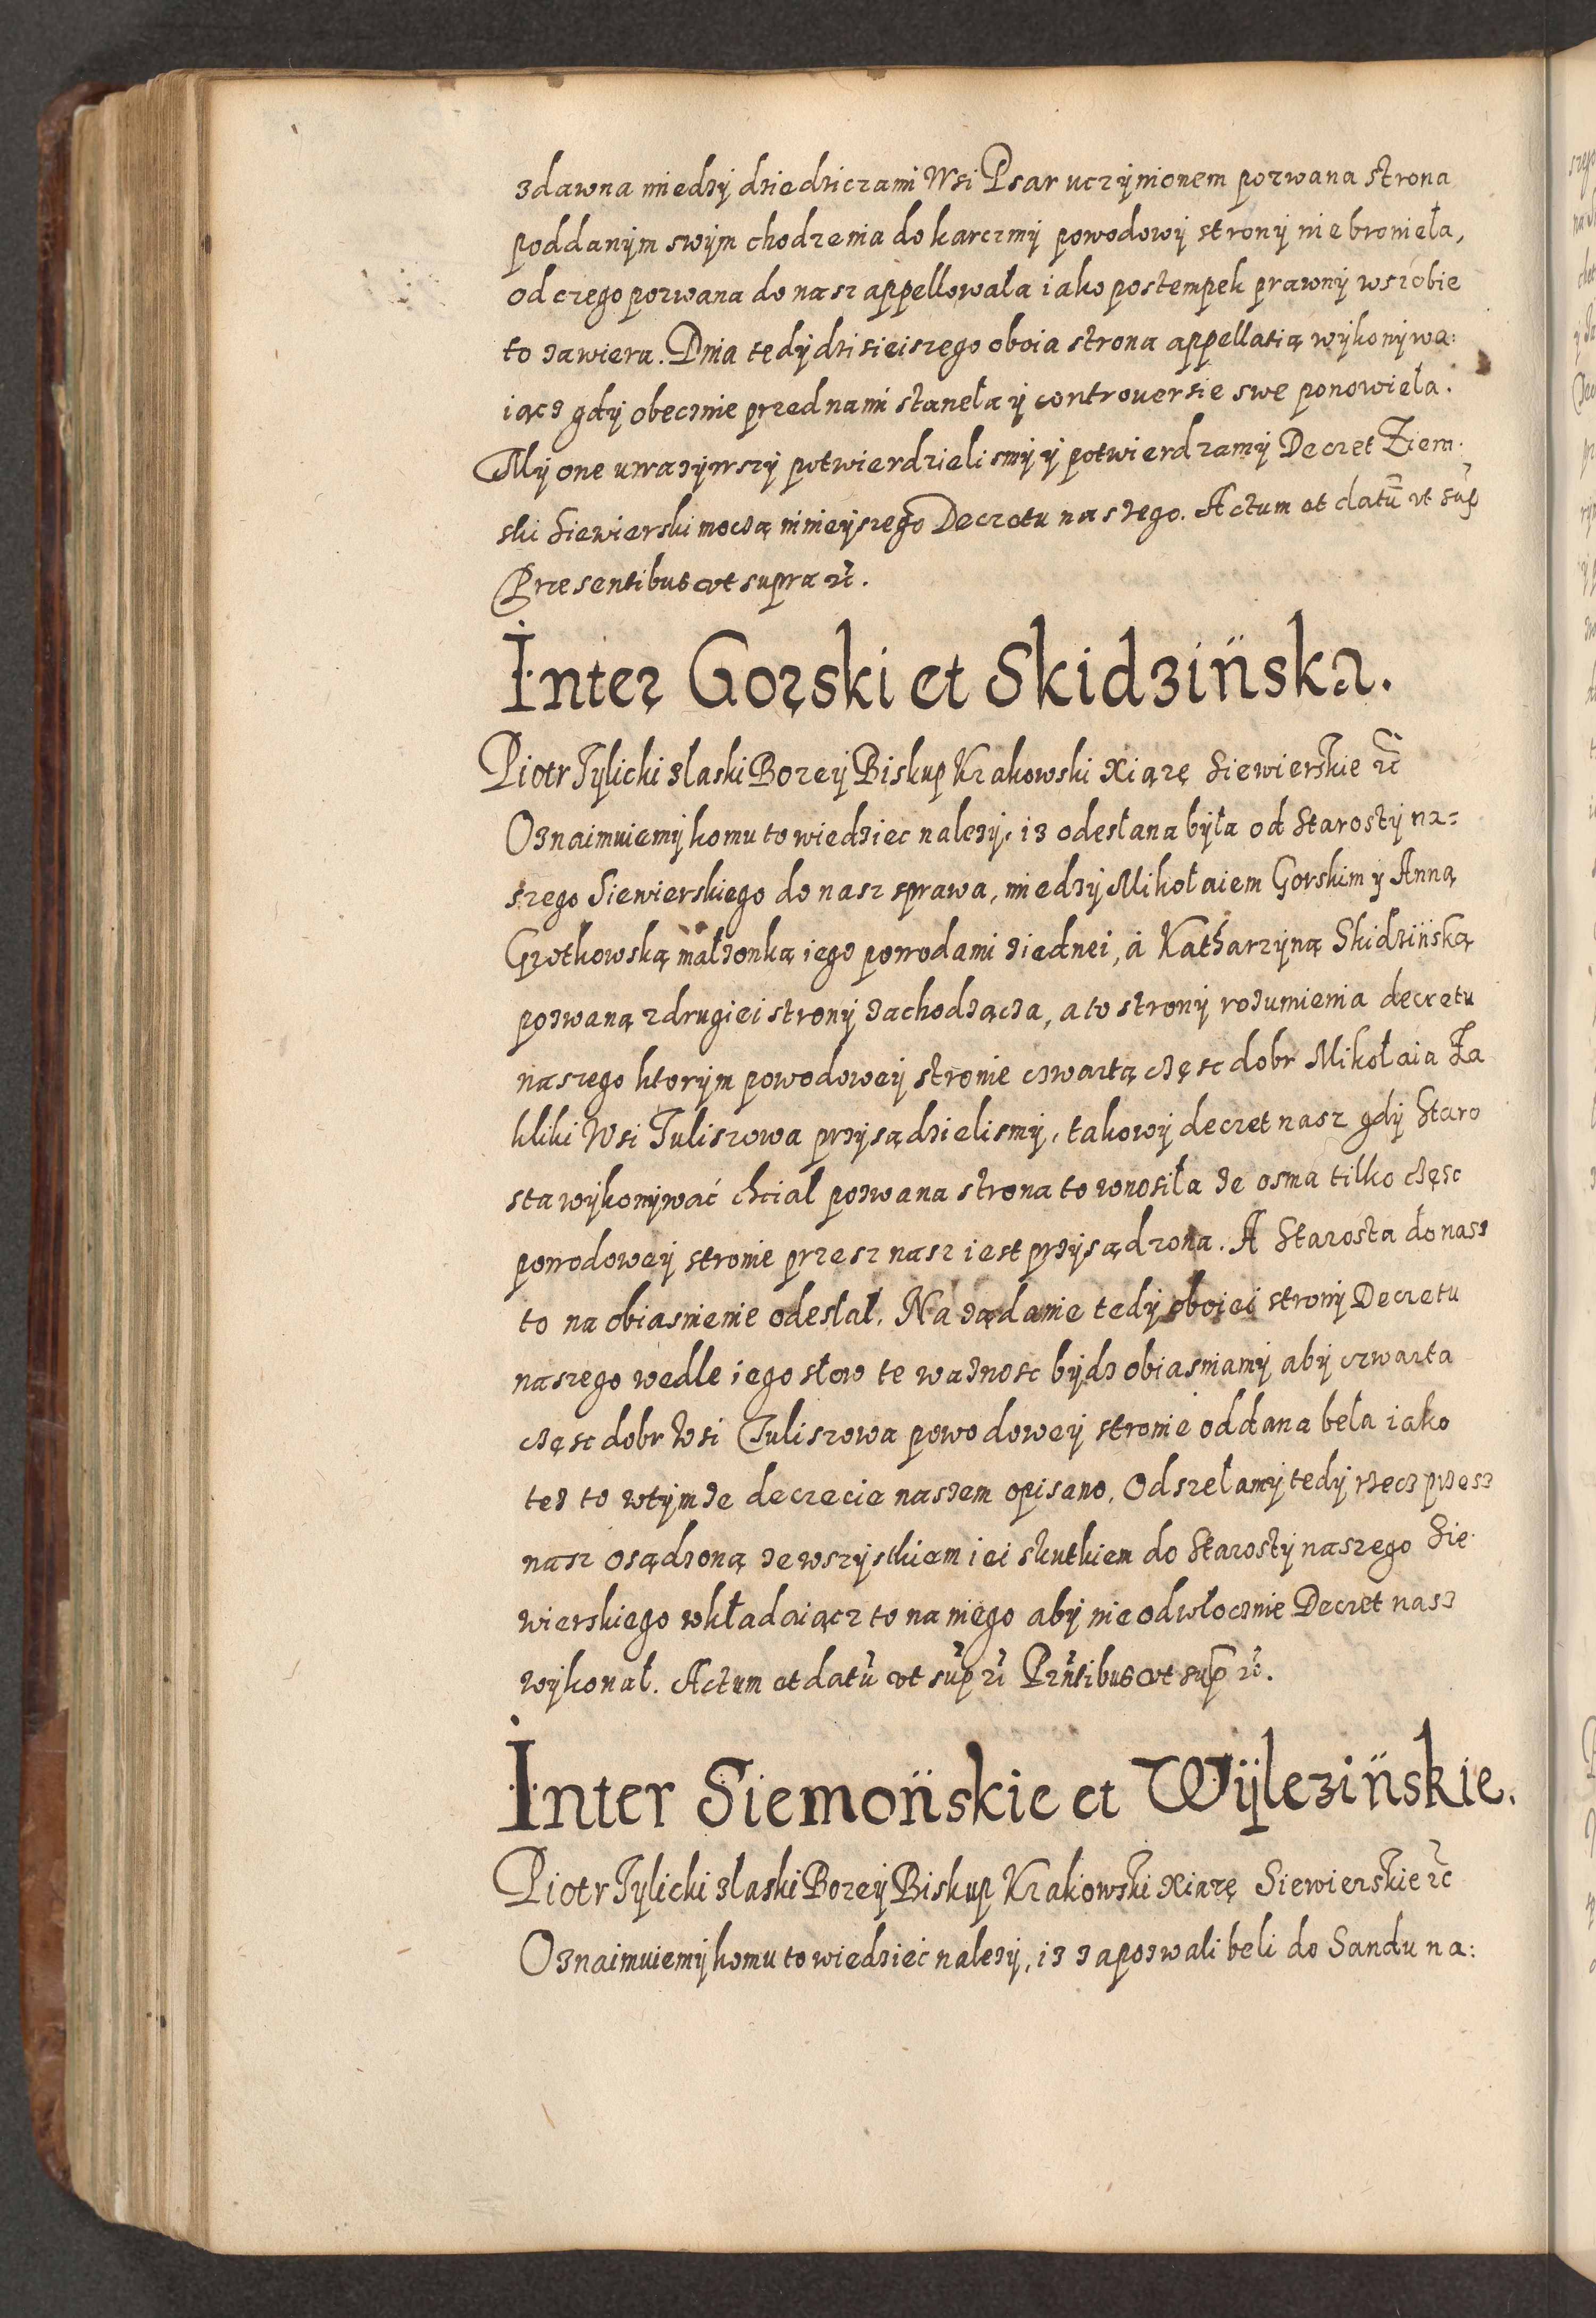 zdawna miedzÿ dziedziczami Wsi Psar uczÿnionem pozwana strona
poddanÿm swÿm chodzenia do karczmÿ powodowÿ stronÿ nie broniela,
od czego pozwana do nasz appellowała iako postempek prawnÿ wszobie
to zawiera. Dnia tedÿ dzisieiszego oboia strona appellatią wÿkonÿwa:
iącz gdÿ obecznie przed nami staneła ÿ controuersie swe ponowieła.
Mÿ one uwazÿwszÿ potwierdzielismÿ ÿ potwierdzamÿ Decret Ziem:
ski Siewierski moczą ninieÿszego Decretu naszego. Actum et datū ut sup
Præsentibus ut supra etc.
Inter Gorski et Skidziński.
Piotr Tÿlicki zlaski Bozeÿ Biskup Krakowski Xiązę Siewierskie etc
Oznaimuiemÿ komu to wiedziec nalezÿ, iz odesłana bÿła od Starostÿ na=
szego Siewierskiego do nasz sprawa, miedzÿ Mikołaiem Gorskim ÿ Anną
Grotkowską małzonką iego powodami ziednei, á Katharzÿną Skidzińską
pozwaną z drugiei stronÿ zachodząca, a to stronÿ rozumienia decretu
naszego ktorÿm powodoweÿ stronie czwartą częsc dobr Mikołaia Za
kliki Wsi Tuliszowa przÿsądzielismÿ, takowÿ decret nasz gdÿ Staro
sta wÿkonÿwać chciał pozwana strona to wnosiła ze osma tilko częsc
powodoweÿ stronie przesz nasz iest przÿsądzona. A Starosta do nasz
to na obiasnienie odesłał. Na ządanie tedÿ oboiei stronÿ Decretu
naszego wedle iego słow te waznosc bÿdz obiasniamÿ abÿ czwarta
częsc dobr Wsi Tuliszowa powodoweÿ stronie oddana beła iako
tez to wtÿmze decrecie naszem opisano. Odszełamÿ tedÿ rzecz przesz
nasz osądzoną ze wszÿstkiem iei skutkiem do Starostÿ naszego Sie:
wierskiego wkładaiącz to na niego abÿ nie odwłocznie Decret nasz
wÿkonał. Actum et datū ut sup etc Prntibus ut sup etc.
Inter Siemońskie et Wÿlezińskie.
Piotr Tÿlicki zlaski Bozeÿ Biskup Krakowski Xiązę Siewierskie etc
Oznaimuiemÿ komu to wiedzieć nalezÿ, iz zapozwali beli do Sandu na: